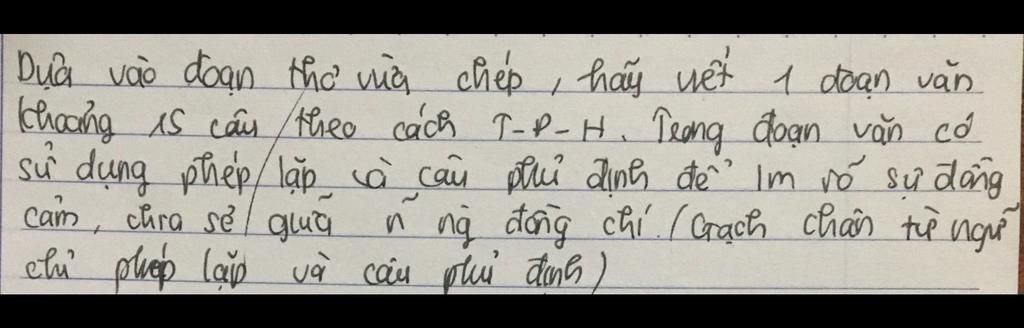 Dựa vào đoạn thơ vừa chép, hãy viết 1 đoạn văn
khoảng 15 câu theo cách T-P-H. Trong đoạn văn có
sử dụng phép lặp và câu phủ định để lm rõ sự đồng
cảm, chia sẻ giữa n~ ng đồng chí. (Gạch chân từ ngữ
chỉ phép lặp và câu phủ định)